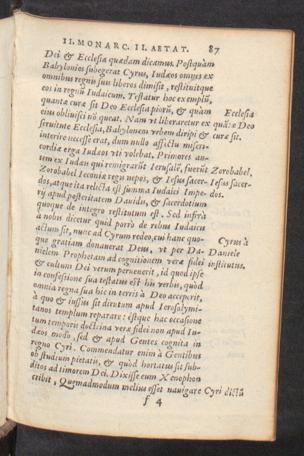 II. MONARC. II. AETAT. 87
Dei & Ecclesia quædam dicamus. Postquàm
Babylonios subegerat Cyrus, Iudæos omnes ex
omnibus regnis suis liberos dimisit, restituitque
eos in regnū Iudaicum. Testatur hoc exemplū,
quantæ curæ sit Deo Ecclesia piorū, & quàm
Ecclesia
eius oblivisci nō queat. Nam vt liberaretur ex
quātæ Deo
seruitute Ecclesia, Babylonem vrbem diripi &
curæ sit.
interire necesse erat, dum nullo afflictu miseri-
cordia erga Iudæos vti volebat. Primores au-
tem ex Iudæis qui remigrarūt, Ierusalē, fuerūt
Zorobabel.
Zorobabel Ieconiæ regis nepos, & Iesus sacer-
Iesus sacer-
dos, atque ita relicta est summa Iudaici Impe-
dos.
rij apud posteritatem Dauidis, & sacerdotium
quoque de integro restitutum est. Sed infrà
à nobis dicetur quid porrò de rebus Iudaicis
actum sit, nunc ad Cyrum redeo, cui hanc quo-
Cyrus à
que gratiam donauerat Deus, vt per Da-
Daniele
nielem Prophetam ad cognitionem veræ fidei
institutus.
& cultum Dei verum peruenerit, id quod ipse
in confessione sua testatus est his verbis, quòd
omnia regna sua hic in terris à Deo acceperit,
à quo & iussus sit dirutum apud Ierosolymi-
tanos templum reparare: éstque hac occasione
tum temporis doctrina veræ fidei non apud Iu-
dæos modò, sed & apud Gentes cognita in
regno Cyri. Commendatur enim à Gentibus
ob studium pietatis, & quòd hortatus sit subdi-
ditos ad timorem Dei. Dixisse eum Xenophon
scribit, Quemadmodum melius esset nauigare
Cyri dictū
f 4